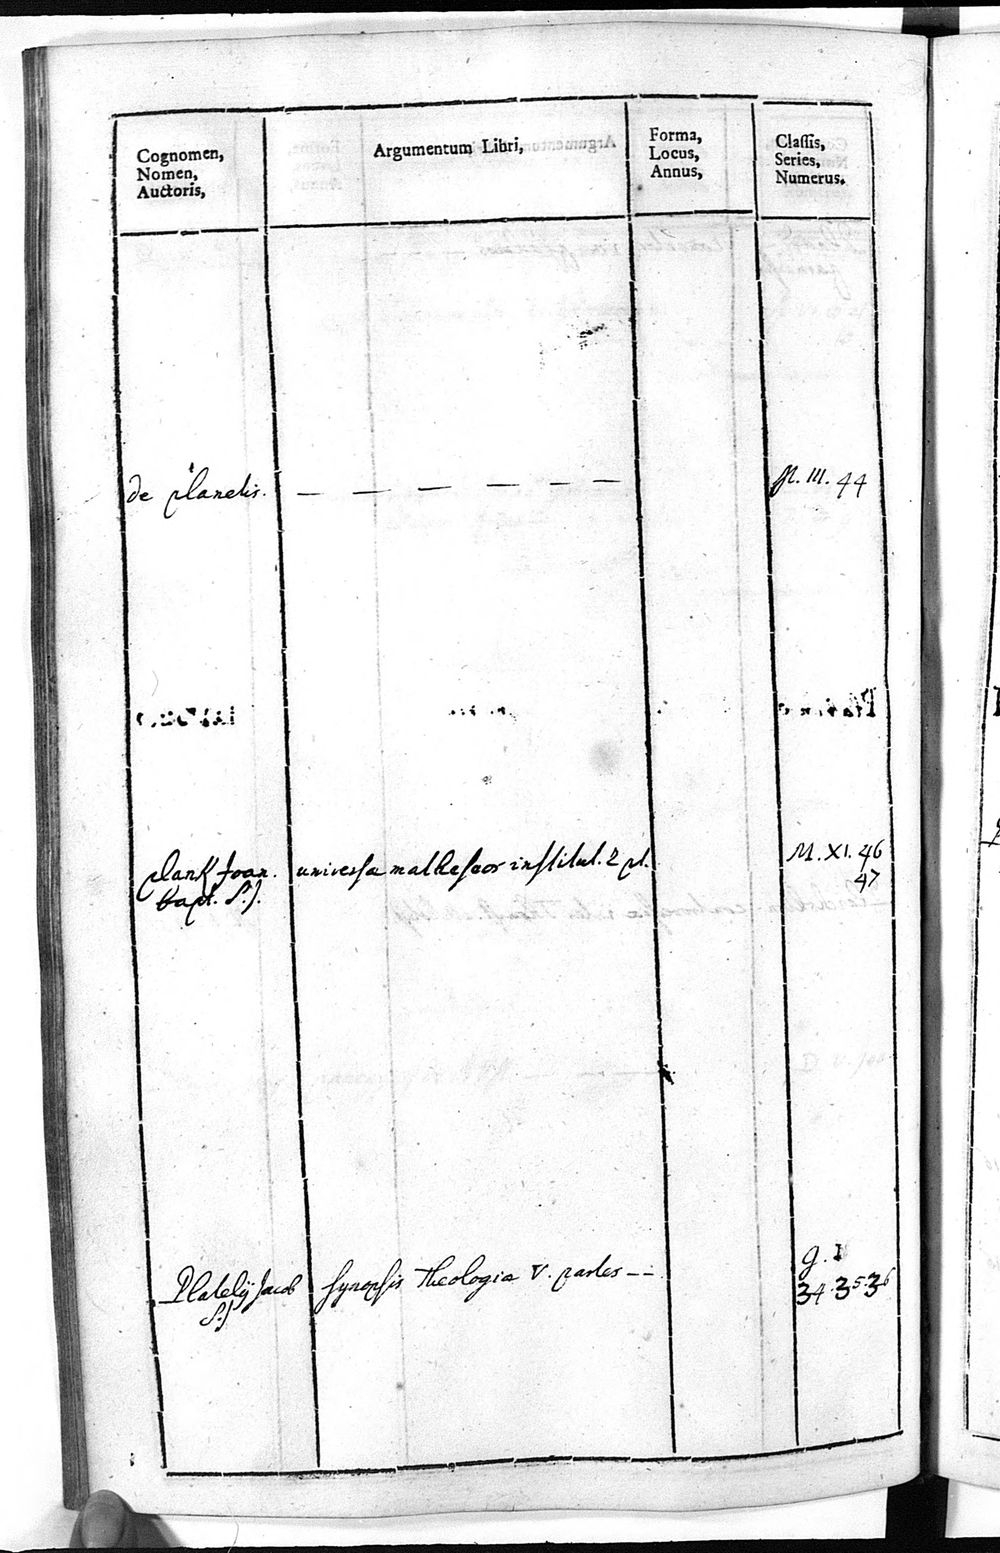 Cognomen,
Nomen,
Auctoris,
Argumentum Libri,
Forma,
Locus,
Annus,
Classis,
Series,
Numerus.
de planetis. — — — — — — M. III. 44
plank Joan. universæ matheseos institut. 2 pt. M. XI. 46
bapt. S.J. 47
Platelij Jacob synopsis Theologiæ V. partes -- g. I
S.J 34.35.36